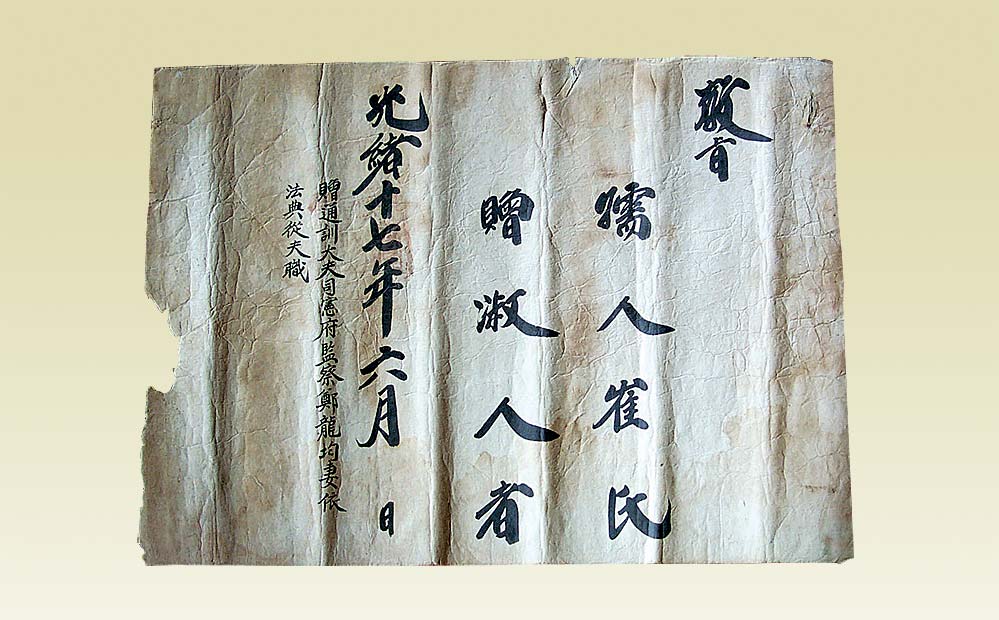 敎旨
孺人崔氏
贈淑人者
光緖十七年六月 日
贈通訓大夫司憲府監察鄭龍均妻依
法典從夫職